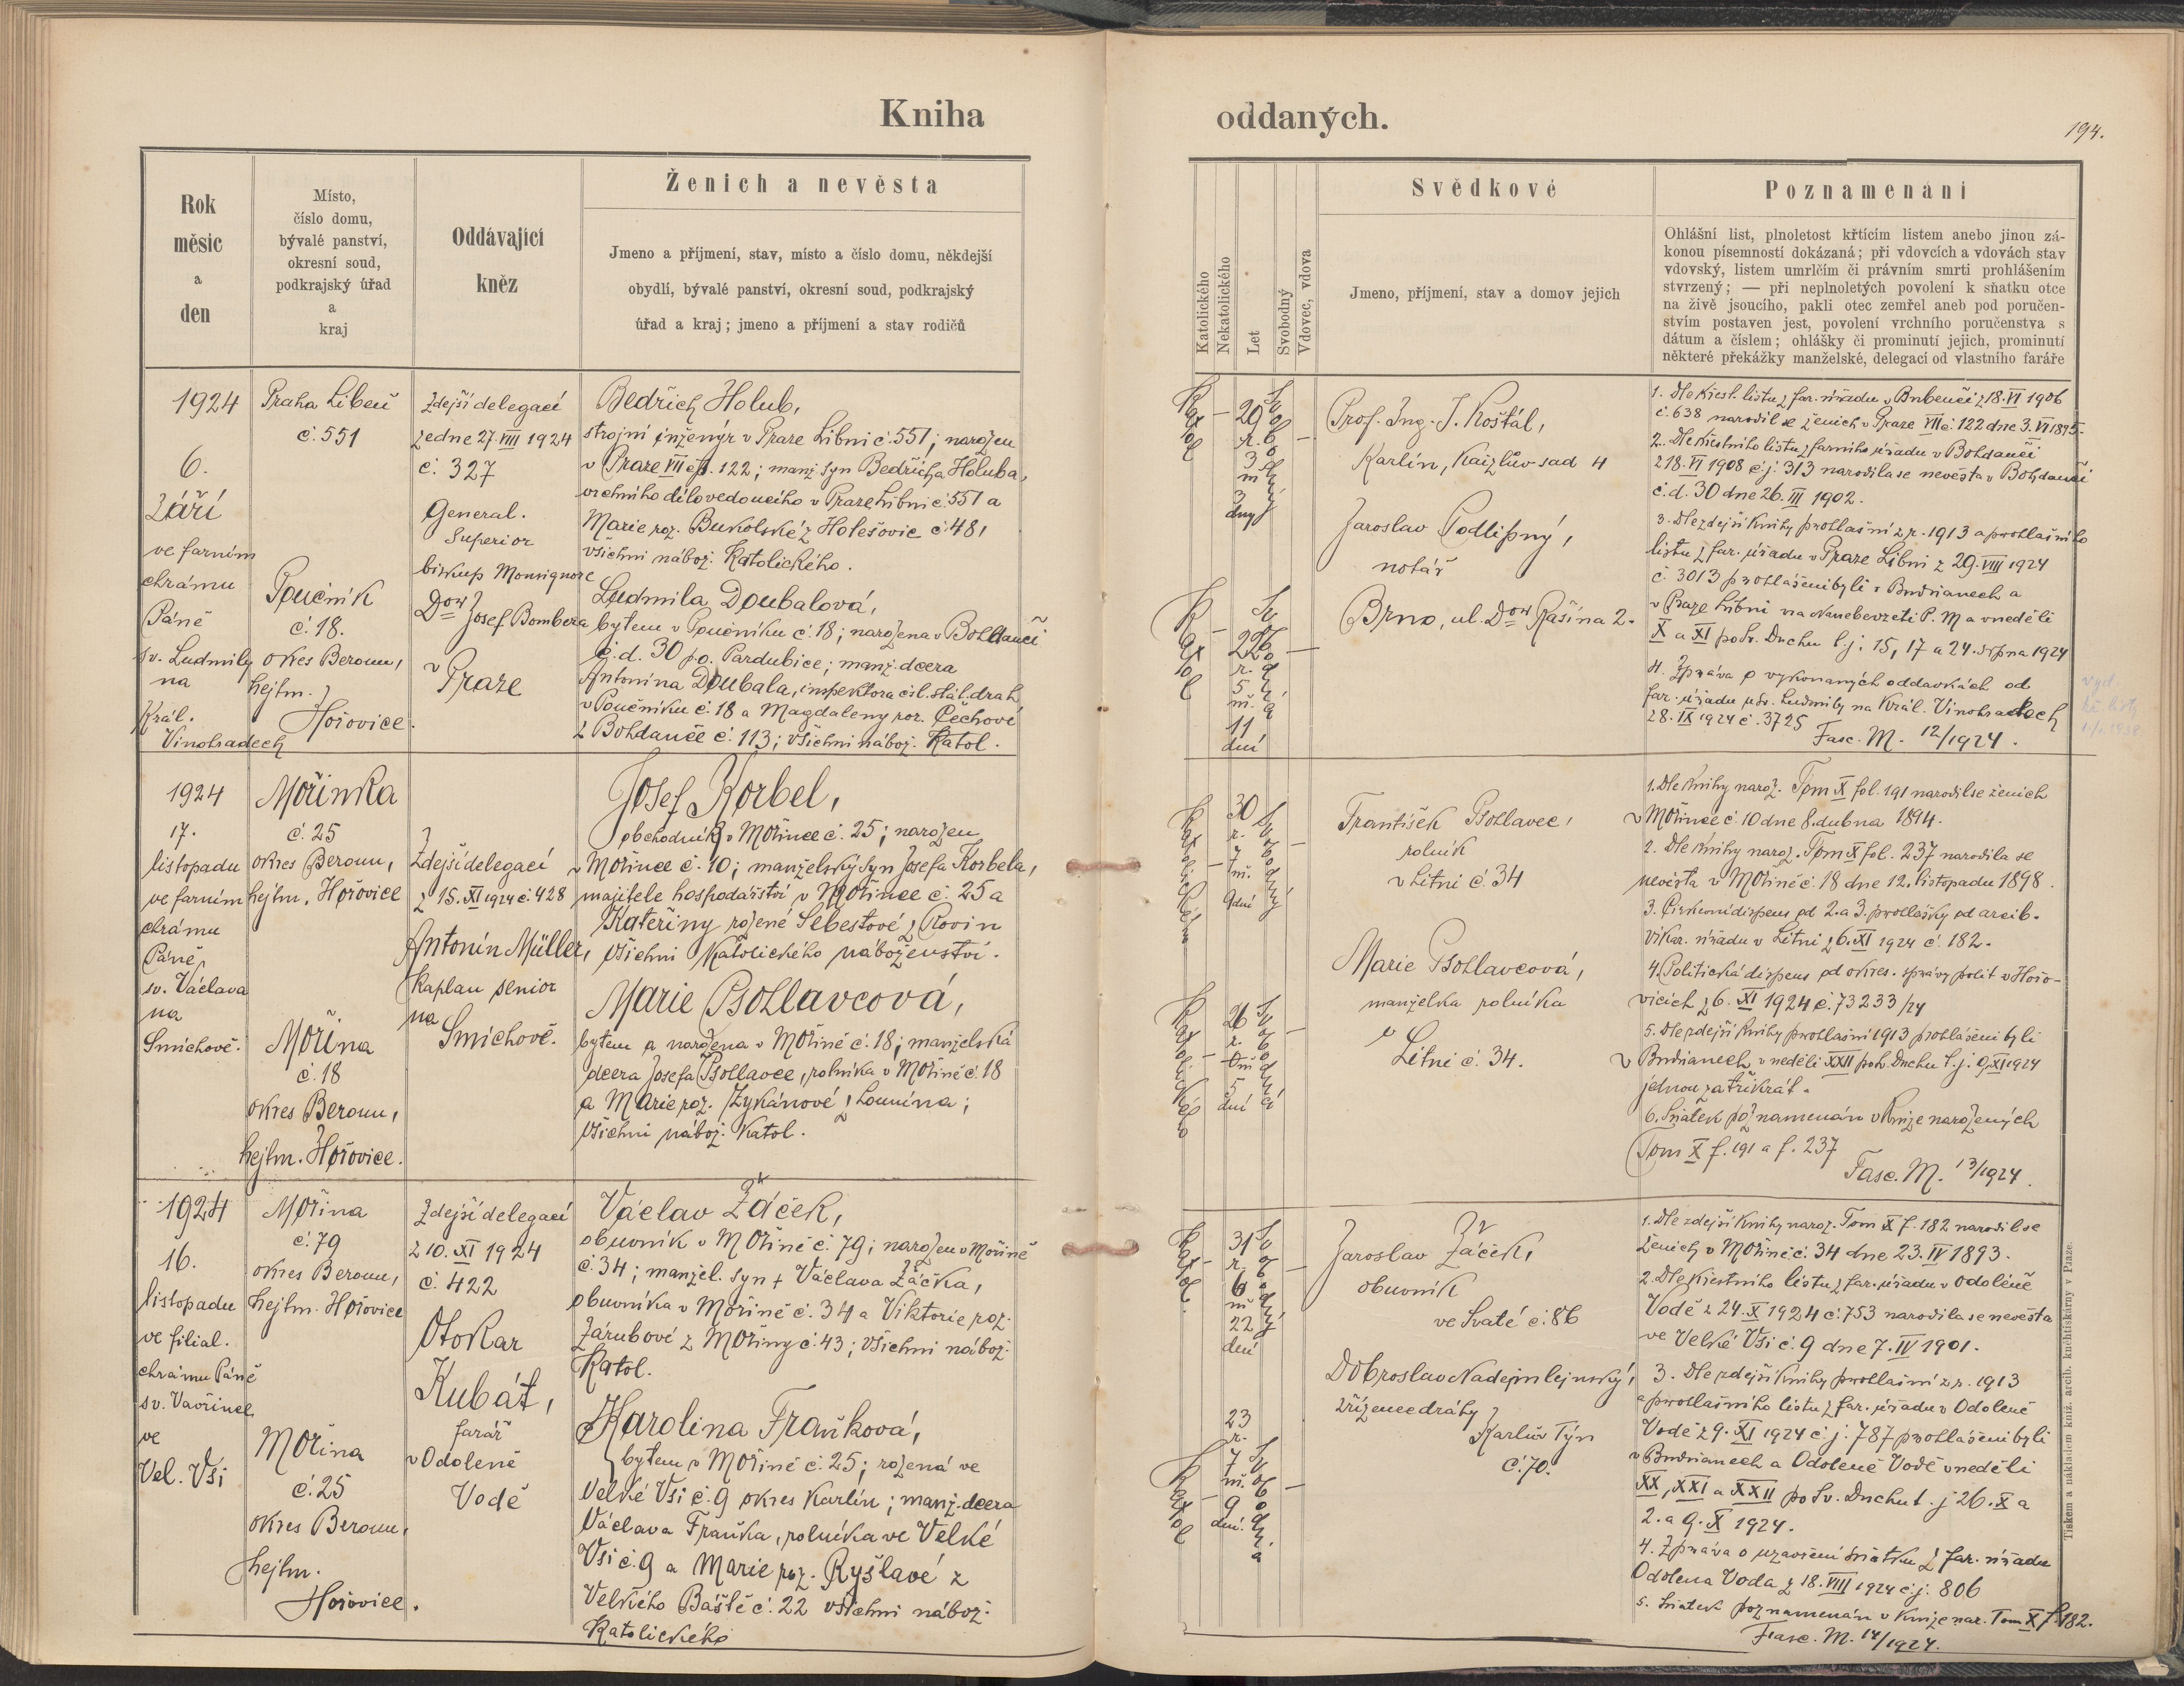 Kniha
oddaných.
194.
Rok
měsíc
a
den
Místo,
číslo domu,
bývalé panství,
okresní soud,
podkrajský úřad
a
kraj
Oddávající
kněz
Ženich a nevěsta
Jmeno a příjmení, stav, místo a číslo domu, někdejší
obydlí, bývalé panství, okresní soud, podkrajský
úřad a kraj; jmeno a příjmení a stav rodičů
Katolického
Nekatolického
Let
Svobodný
Vdovec, vdova
Svědkové
Jmeno, příjmení, stav a domov jejich
Poznamenání
Ohlášní list, plnoletost křtícím listem anebo jinou zá-
konou písemností dokázaná; při vdovcích a vdovách stav
vdovský, listem umrlčím či právním smrti prohlášením
stvrzený; — při neplnoletých povolení k sňatku otce
na živě jsoucího, pakli otec zemřel aneb pod poručen-
stvím postaven jest, povolení vrchního poručenstva s
dátum a číslem; ohlášky či prominutí jejich, prominutí
některé překážky manželské, delegací od vlastního faráře
1924
6.
Září
ve farním
chrámu
Páně
sv. Ludmily
na
Král.
Vinohradech
Praha Libeň
č. 551
Poučník
č. 18.
okres Beroun,
hejtm.
Hořovice.
Zdejší delegací
ze dne 27. VIII 1924
č. 327
General.
Superior
biskup Monsignore
Dor Josef Bombera
v
Praze
Bedřich Holub,
strojní inženýr v Praze Libni č. 551; narozen
v Praze VII čp. 122; manž. syn Bedřicha Holuba,
vrchního dílovedoucího v Praze Libni č. 551 a
Marie roz. Bukolské z Holešovic č. 481
všichni nábož. Katolického.
Ludmila Doubalová,
bytem v Poučníku č. 18; narozena v Bohdanči
č. d. 30 p. o. Pardubice; manž. dcera
Antonína Doubala, inspektora čsl. stát. drah
v Poučníku č. 18 a Magdaleny roz. Čechové
z Bohdanče č. 113; všichni nábož. Katol.
Katol
29
r.
3
m
3
dny
Svobodný
Katol
22
r.
5
m.
11
dní
Svobodná
Prof. Ing. J. Koštál,
Karlín, Kaizlův sad 4
Jaroslav Podlipný,
notář
Brno, ul. Dor Rašína 2.
1. Dle křest. listu z far. úřadu v Bubenči z 18. VI 1906
č. 638 narodil se ženich v Praze VII č. 122 dne 3. VI 1895.
2. Dle křestního listu z farního úřadu v Bohdanči
z 18. VI 1908 č. j. 313 narodila se nevěsta v Bohdanči
č. d. 30 dne 26. III 1902.
3. Dle zdejší knihy prohlašní z r. 1913 a prohlašního
listu z far. úřadu v Praze Libni z 29. VIII 1924
č. 3013 prohlášeni byli v Budňanech a
v Praze Libni na Nanebevzetí P. M a v neděli
X a XI po Sv. Duchu t. j. 15, 17 a 24. srpna 1924
4. Zpráva o vykonaných oddavkách od
far. úřadu u sv. Ludmily na Král. Vinohradech
z 8. IX 1924 č. 3725
Fasc. M. 12/1924.
1924
17.
listopadu
ve farním
chrámu
Páně
sv. Václava
na
Smíchově.
Mořinka
č. 25
okres Beroun,
hejtm. Hořovice
Mořina
č. 18
okres Beroun,
hejtm. Hořovice.
Zdejší delegací
z 15. XI 1924 č. 428
Antonín Müller,
kaplan senior
na
Smíchově.
Josef Korbel,
obchodník v Mořince č. 25; narozen
v Mořince č. 10; manželský syn Josefa Korbela,
majitele hospodářství v Mořince č. 25 a
Kateřiny rozené Šebestové z Rovin
všichni Katolického náboženství.
Marie Psohlavcová,
bytem a narozena v Mořině č. 18; manželská
dcera Josefa Psohlavce, rolníka v Mořině č. 18
a Marie roz. Zykánové z Lounína;
všichni nábož. Katol.
Katolického
30
r.
7
m.
9 dní
Svobodný
Katolického
26
r.
0 m
5
dní
Svobodná
František Psohlavec,
rolník
v Litni č. 34
Marie Psohlavcová,
manželka rolníka
v
Litni č. 34.
1. Dle knihy naroz. Tom X fol. 191 narodil se ženich
v Mořince č. 10 dne 8. dubna 1894.
2. Dle knihy naroz. Tom X fol. 237 narodila se
nevěsta v Mořině č. 18 dne 12. listopadu 1898.
3. Církevní dispens od 2. a 3. prohlášky od arcib.
vikar. úřadu v Litni z 6. XI 1924 č. 182.
4. Politická dispens od okres. správy polit v Hořo-
vicích z 6. XI 1924 č. 73233/24
5. Dle zdejší knihy prohlašní 1913 prohlášeni byli
v Budňanech v neděli XXII po sv. Duchu t. j. 9. XI 1924
jednou za třikrát.
6. Sňatek poznamenán v knize narozených
Tom X f. 191 a f. 237
Fasc. M. 13/1924.
1924
16.
listopadu
ve filial.
chrámu Páně
sv. Vavřince
ve
Vel. Vsi
Mořina
č. 79
okres Beroun,
hejtm. Hořovice
Mořina
č. 25
okres Beroun,
hejtm.
Hořovice.
Zdejší delegací
z 10. XI 1924
č. 422
Otokar
Kubát,
farář
v Odoleně
Vodě
Václav Žáček,
obuvník v Mořině č. 79; narozen v Mořině
č. 34; manžel. syn † Václava Žáčka,
obuvníka v Mořině č. 34 a Viktorie roz.
Zárubové z Mořiny č. 43; všichni nábož.
Katol.
Karolina Fraňková,
bytem v Mořině č. 25; rozená ve
Velké Vsi č. 9 okres Karlín; manž. dcera
Václava Fraňka, rolníka ve Velké
Vsi č. 9 a Marie roz. Ryšlavé z
Velkého Baště č. 22 všichni nábož.
Katolického
Katol.
31
r.
6
m
22
dní
Svobodný
Katol
23
r.
7
m.
9
dní.
Svobodná
Jaroslav Žáček,
obuvník
ve Svaté č. 86
Dobroslav Nadejmlejnský,
zřízenec dráhy
Karlův Týn
č. 70.
1. Dle zdejší knihy naroz. Tom X f. 182 narodil se
ženich v Mořině č. 34 dne 23. IV 1893.
2. Dle křestního listu z far. úřadu v Odoleně
Vodě z 24. X 1924 č. 753 narodila se nevěsta
ve Velké Vsi č. 9 dne 7. IV 1901.
3. Dle zdejší knihy prohlašní z r. 1913
a prohlašního listu z far. úřadu v Odoleně
Vodě z 9. XI 1924 č. j. 787 prohlášeni byli
v Budňanech a Odoleně Vodě v neděli
XX, XXI a XXII po Sv. Duchu t. j 26. X a
2. a 9. X 1924.
4. Zpráva o uzavření sňatku z far. úřadu
Odolena Voda z 18. VIII 1924 č. j. 806
5. Sňatek poznamenán v knize nar. Tom X f. 182.
Fasc. M. 14/1924.
Tiskem a nákladem kníž. arcib. knihtiskárny v Praze.